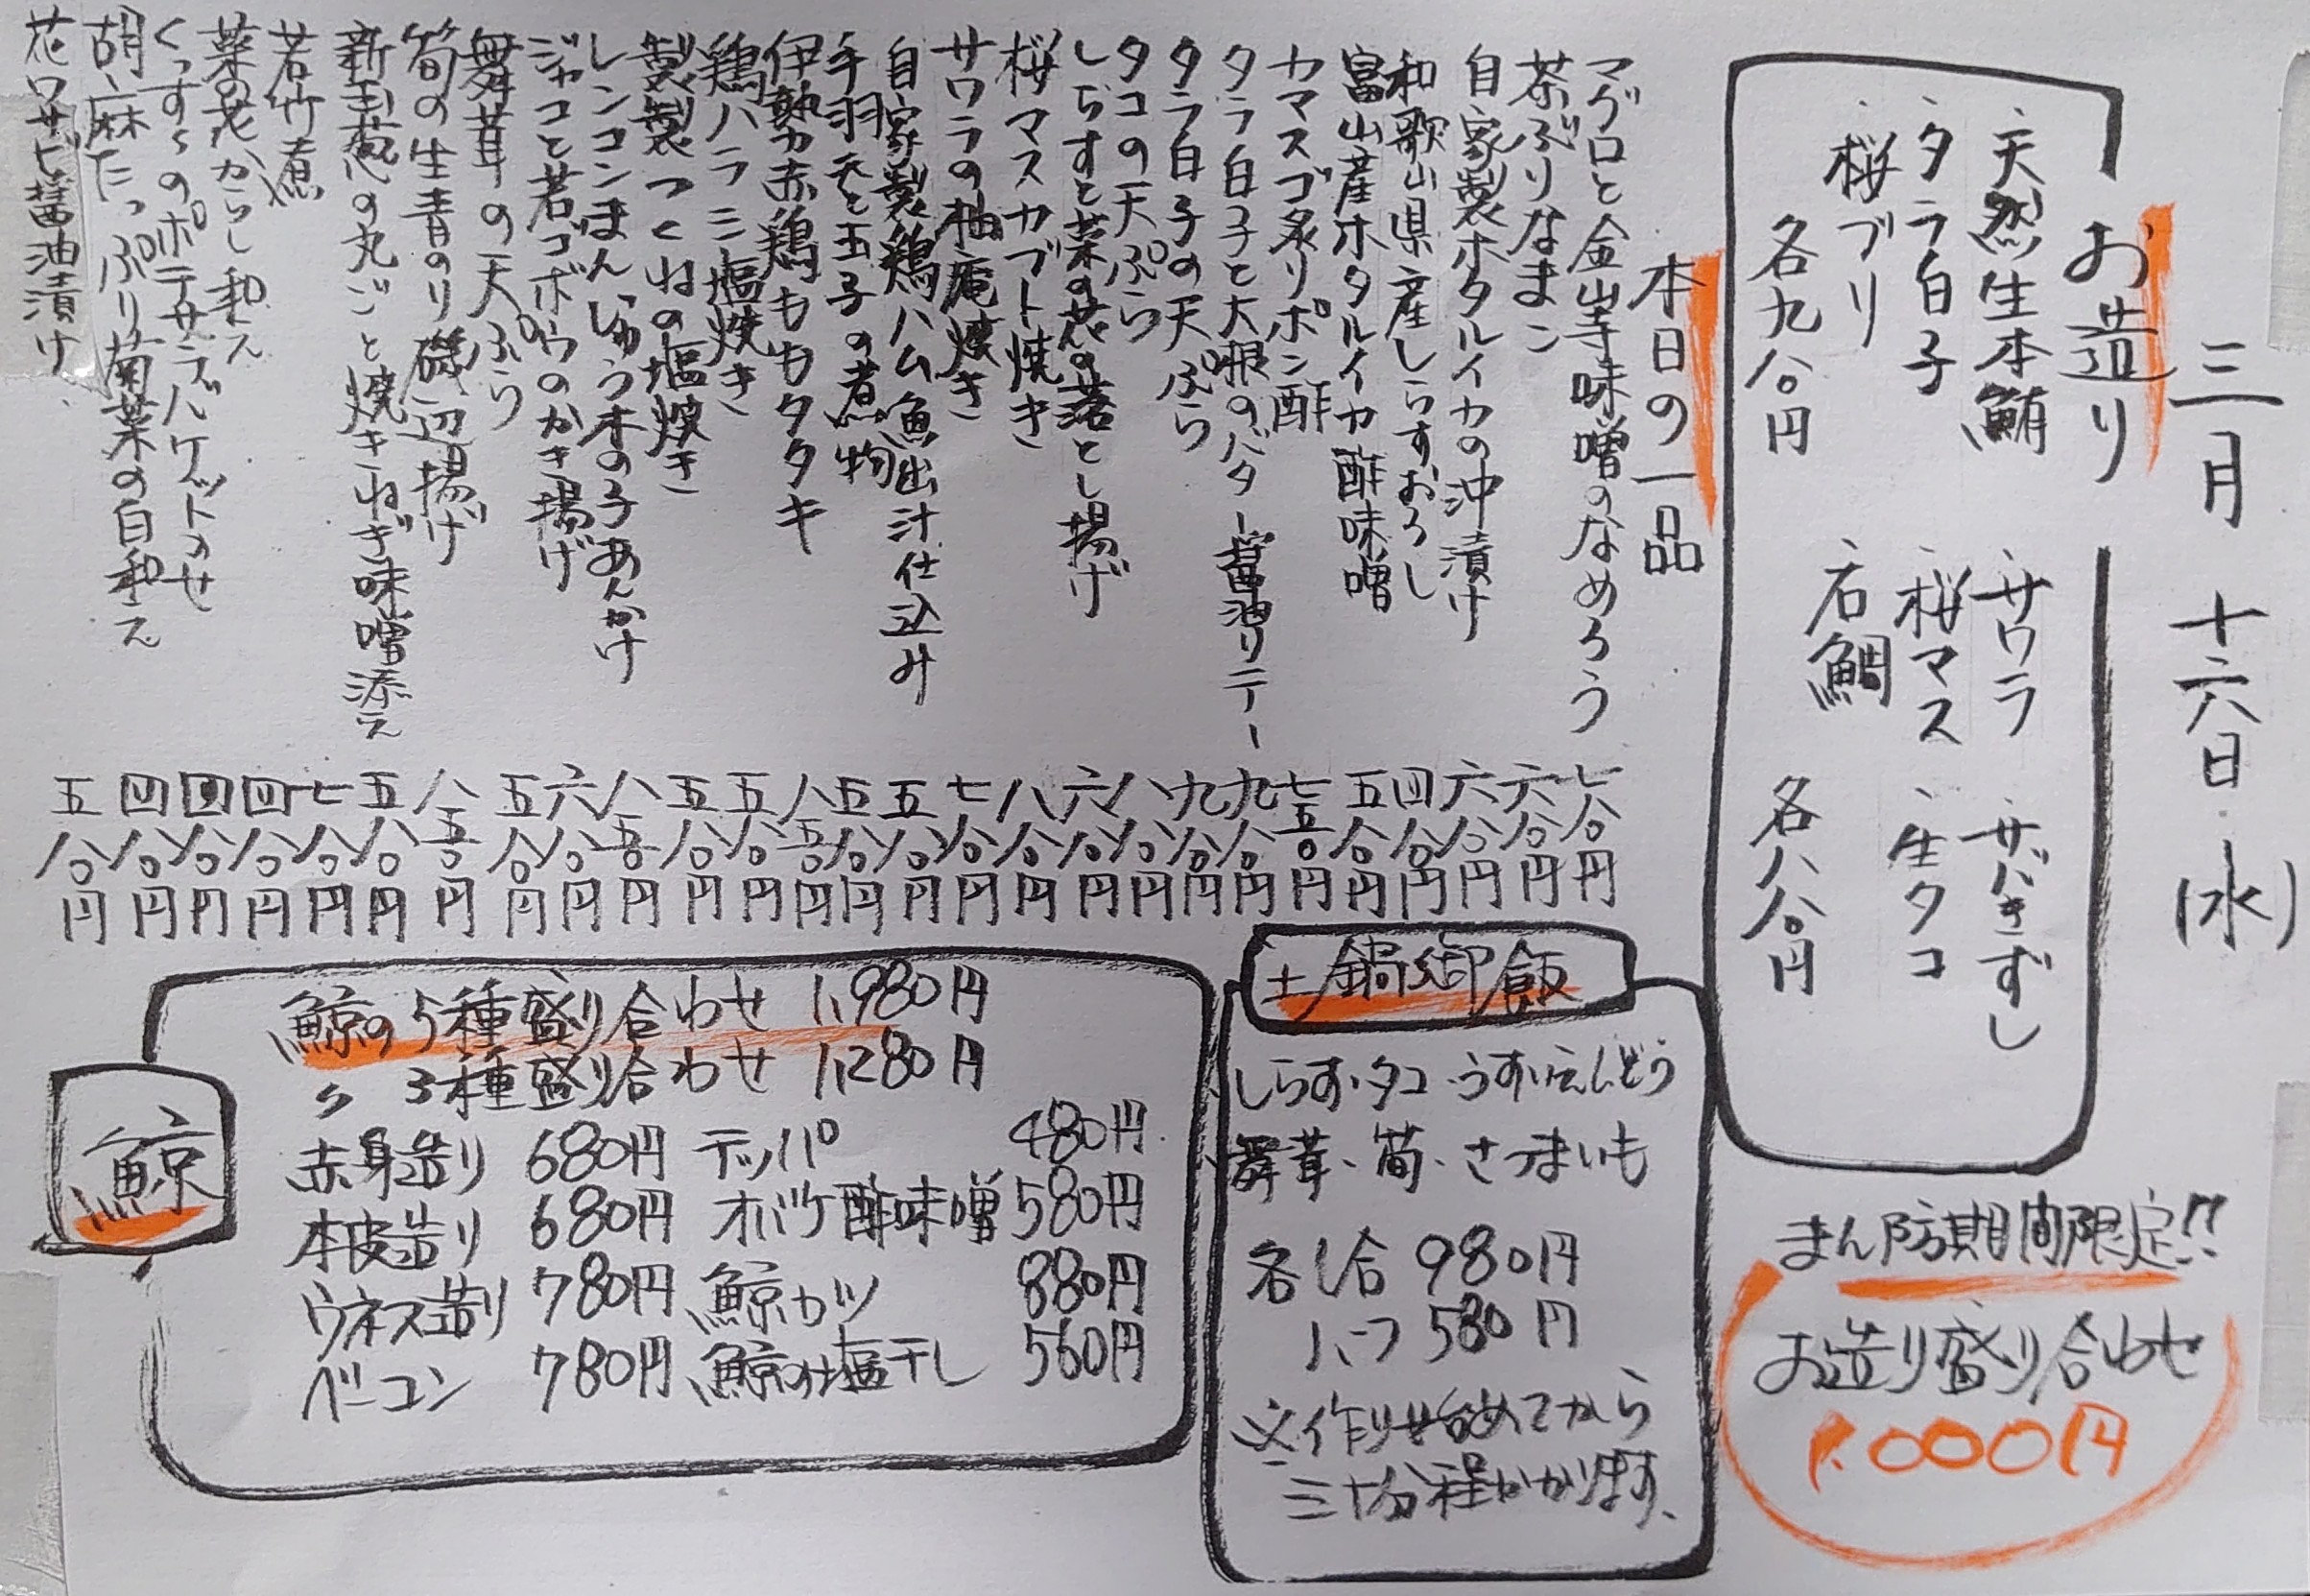 三月十六日(水)
お造り
・天然生本鮪
・タラ白子
・桜ブリ
各九八〇円
・サワラ
・桜マス
・石鯛
・サバきずし
・生タコ
各八八〇円
まん防期間限定!!
お造り盛り合わせ
1,000円
本日の一品
マグロと金山寺味噌のなめろう 七八〇円
茶ぶりなまこ 六八〇円
自家製ホタルイカの沖漬け 六八〇円
和歌山県産しらすおろし 四八〇円
富山産ホタルイカ酢味噌 五八〇円
カマスゴ炙りポン酢 七五〇円
タラ白子と大根のバター醤油ソテー 九八〇円
タラ白子の天ぷら 九八〇円
タコの天ぷら 八八〇円
しらすと菜の花の落とし揚げ 六八〇円
桜マスカブト焼き 八八〇円
サワラの柚庵焼き 七八〇円
自家製鶏ハム魚出汁仕込み 五八〇円
手羽天と玉子の煮物 五八〇円
伊勢赤鶏ももタタキ 八五〇円
鶏ハラミ塩焼き 五八〇円
製製つくねの塩焼き 五八〇円
レンコンまんじゅう木の子あんかけ 八五〇円
ジャコと若ゴボウのかき揚げ 六八〇円
舞茸の天ぷら 五八〇円
筍の生青のり磯辺揚げ 八五〇円
新玉葱の丸ごと焼きねぎ味噌添え 五八〇円
若竹煮 七八〇円
菜の花からし和え 四八〇円
くっすぅのポテサラバケットのせ 四八〇円
胡麻たっぷり菊菜の白和え 四八〇円
花ワサビ醤油漬け 五八〇円
土鍋御飯
しらす・タコ・うすいえんどう
舞茸・筍・さつまいも
各1合 980円
ハーフ 580円
※作り始めてから
三十分程かかります、
鯨
鯨の5種盛り合わせ 1,980円
〃 3種盛り合わせ 1,280円
赤身造り 680円 テッパ 480円
本皮造り 680円 オバケ酢味噌 580円
ウネス造り 780円 鯨カツ 880円
ベーコン 780円 鯨の塩干し 560円